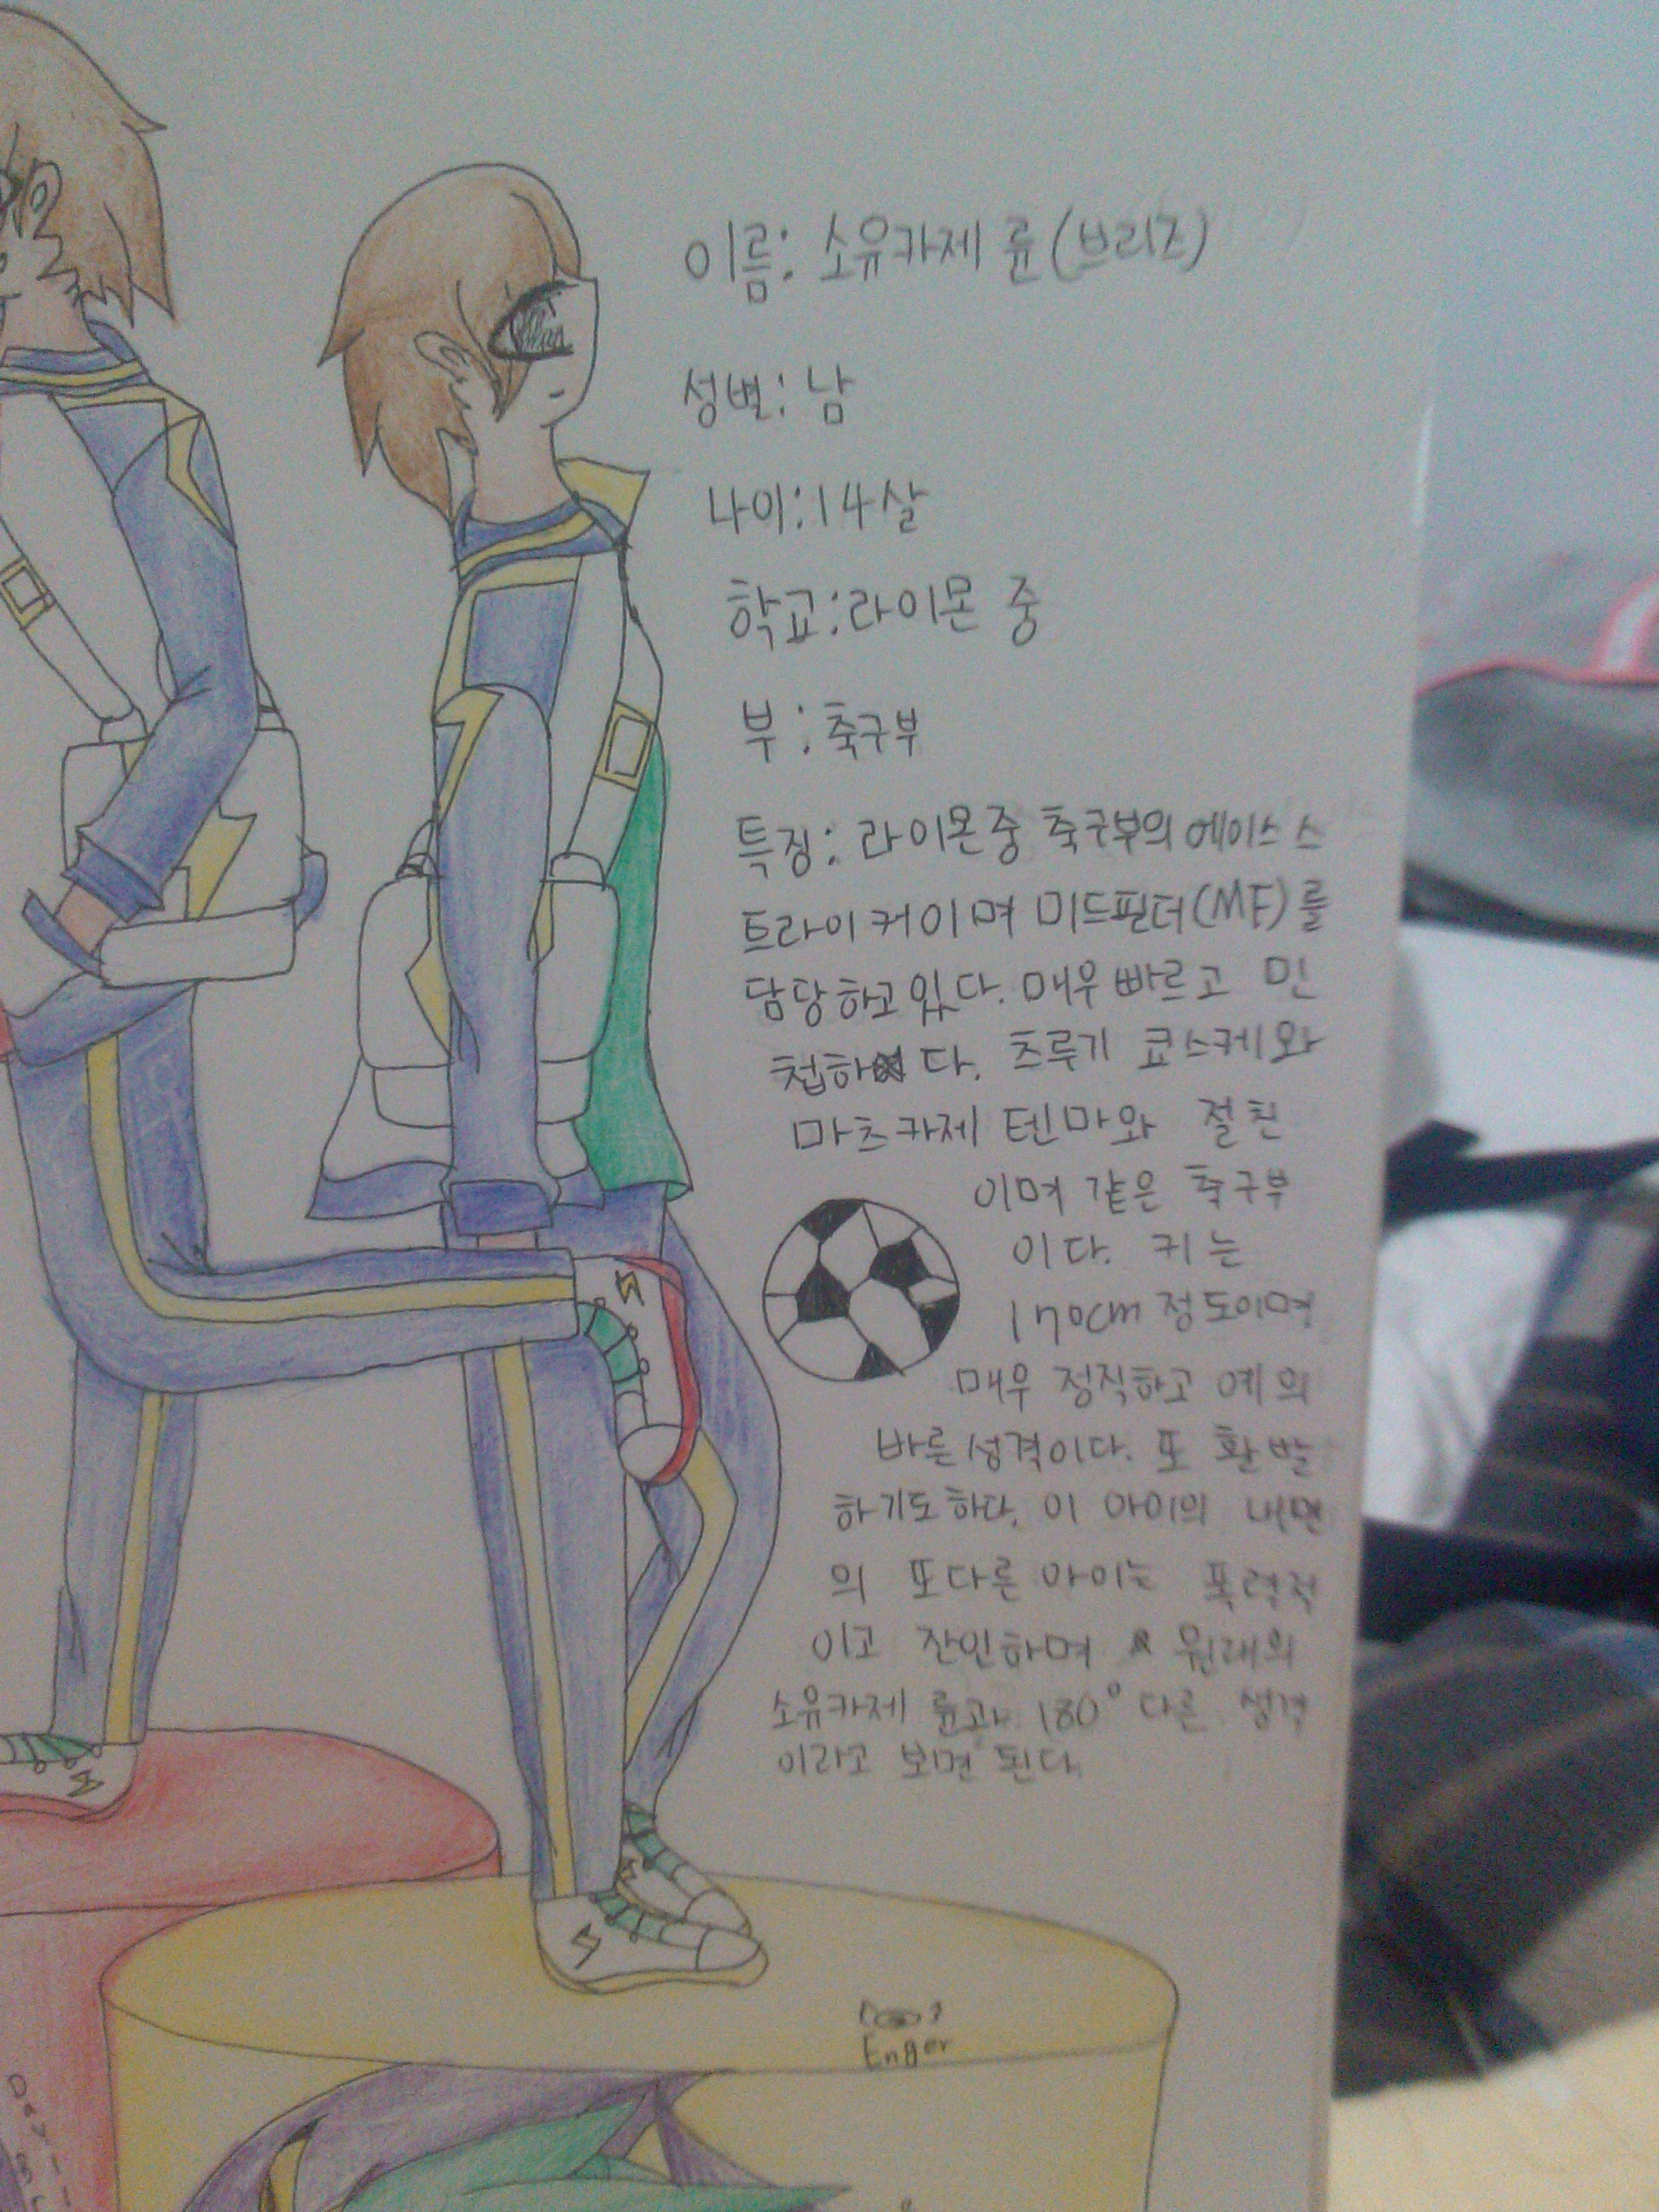 이름: 소유카제 륜(브리즈)
성별: 남
나이: 14살
학교: 라이몬 중
부 : 축구부
특징: 라이몬중 축구부의 에이스 스
트라이커이며 미드필더(MF)를
담당하고 있다. 매우 빠르고 민
첩하다. 츠루기 쿄스케와
마츠카제 텐마와 절친
이며 같은 축구부
이다. 키는
170cm 정도이며
매우 정직하고 예의
바른 성격이다. 또 활발
하기도 하다. 이 아이의 내면
의 또다른 아이는 폭력적
이고 잔인하며 원래의
소유카제 륜과 180° 다른 성격
이라고 보면 된다.